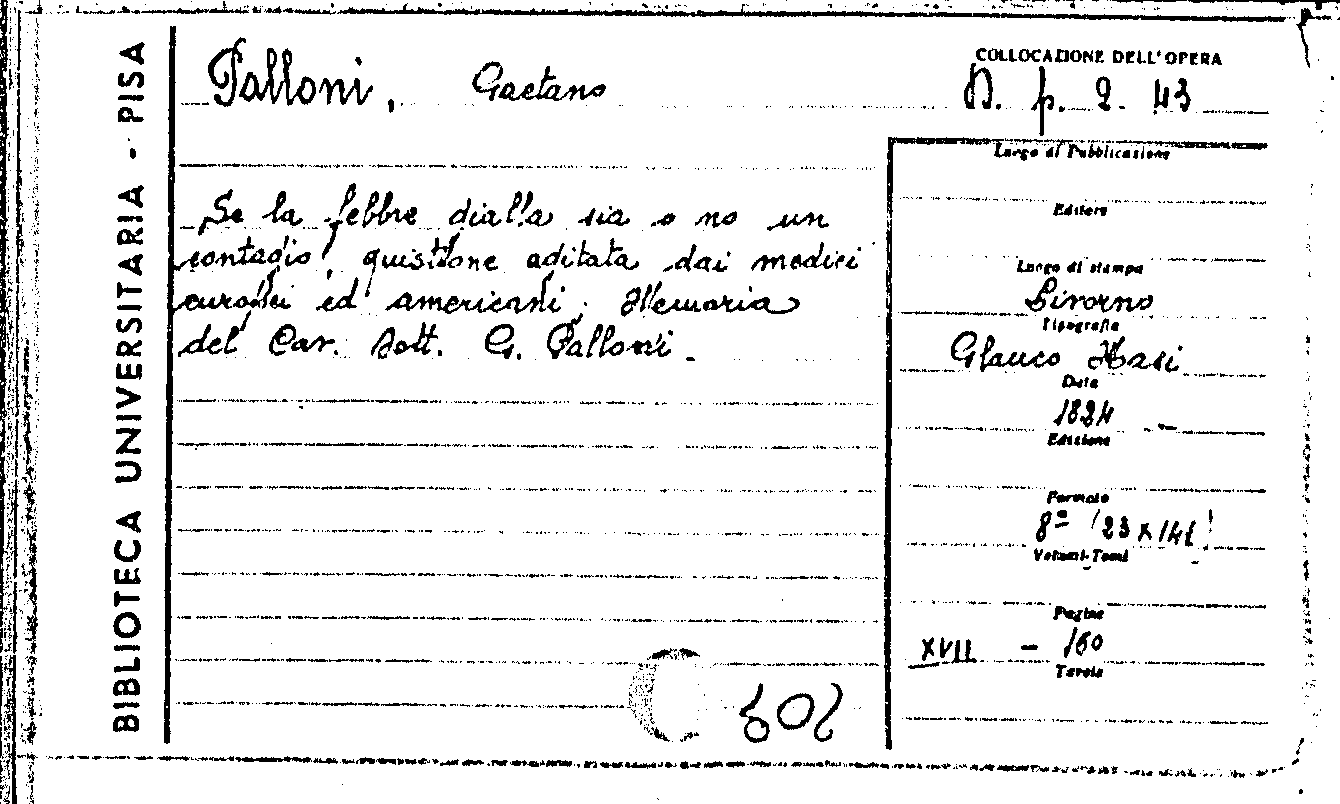 BIBLIOTECA UNIVERSITARIA - PISA
Palloni, Gaetano
COLLOCAZIONE DELL'OPERA
D. p. 2. 43
Se la febbre gialla sia o no un
contagio, quistione agitata dai medici
europei ed americani; Memoria
del Cav. Dott. G. Palloni.
Luogo di Pubblicazione
Editore
Luogo di stampa
Livorno
Tipografia
Glauco Masi
Data
1824
Edizione
Formato
8º (23 x 14)
Volumi-Tomi
Pagine
XVII - 160
Tavole